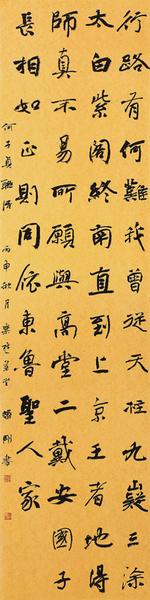 行路有何難我曾從天柱九嶷三涂
太白紫閣終南直到上京王者地得
師真不易所願與高堂二戴安國子
長相如正則同依東魯聖人家
何子貞聯語 丙申秋月 剛書